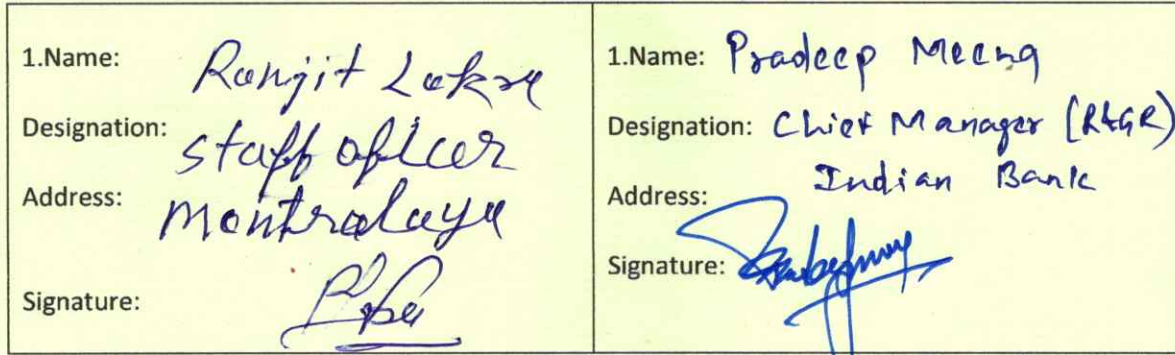 1.Name: Ranjit Lakra
Designation: staff officer
Address: Mantralaya
Signature:
1.Name: Pradeep Meena
Designation: Chief Manager (R&GR)
Indian Bank
Address:
Signature: